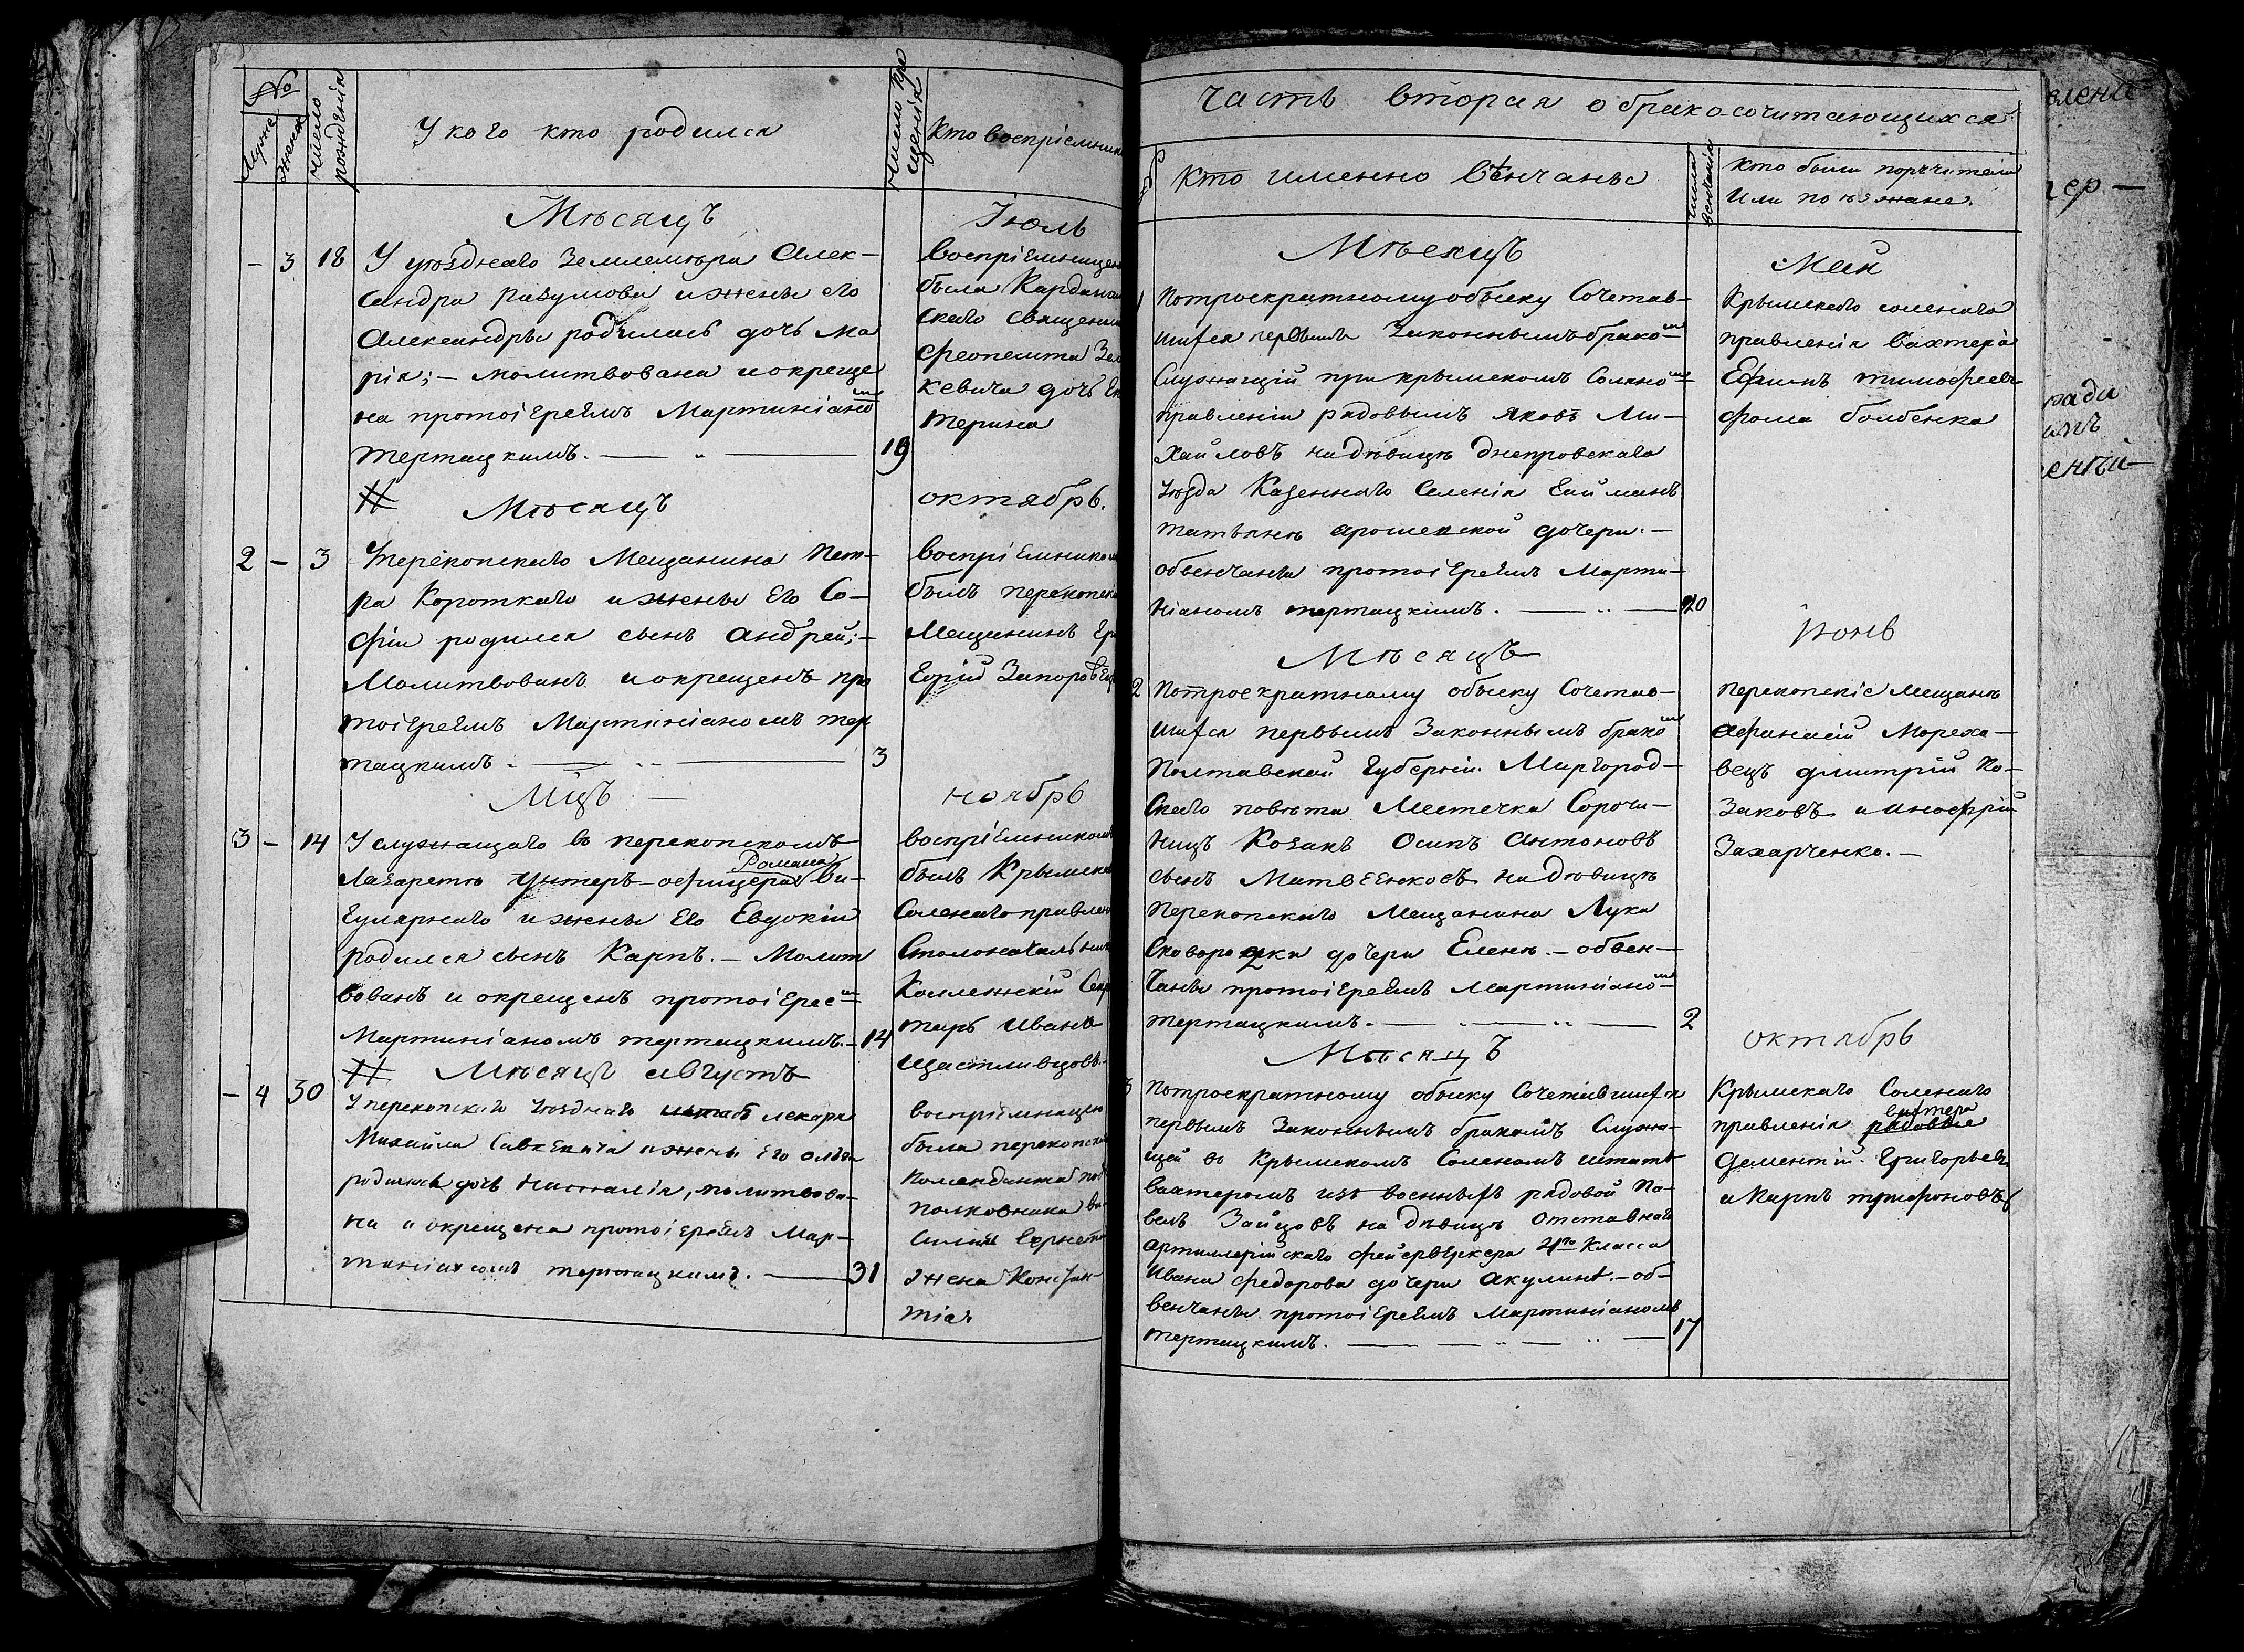 №
Мужес
Женск
число рожденiя
У кого кто родился
число крещенiя
Кто воспрiемник
Мѣсяцъ
Iюль
— 3 18
У уѣзднаго Землемѣра Алек—
сандра Разумова и жены его
Александры родилась дочь Ма
рiя; — молитвована и креще
на протоiереемъ Мартинiано м
тертацкимъ. — " — 19
воспрiемницею
была Кардана
скаго священни
Феопемта Зел
кевича дочь Ек
терина
Мѣсяцъ
октябрь.
2 — 3
У перекопскаго Мещанина Пет—
ра Короткаго и жены Его Со—
фiи родился сынъ Андрей; —
Молитвованъ и окрещенъ про
тоiереемъ Мартинiаномъ тер
тацкимъ. — 3
воспрiемником
былъ перекопск
Мещанинъ Гри
Мцъ —
ноябрь
3 — 14
У служащаго въ перекопскомъ
Лазаретѣ унтеръ-офицера Романа Ви—
гулярнаго и жены Его Евдокiи
родился сынъ Карпъ. — Молит
вованъ и окрещенъ протоiерее м
Мартинiаномъ тертацкимъ. — 14
воспрiемником
былъ Крымска
Соленаго правлен
Столоначальник
Коллежскiй Секр
тарь Иванъ
Щастливцовъ. —
Мѣсяцъ августъ
— 4 30
У перекопскаго уѣзднаго штабъ лекаря
Михайла Савкевича и жены Его ольги
родилась дочь Наталiя, молитвова—
на и окрещена протоiереемъ Мар—
тинiаномъ тертацкимъ. — 31
воспрiемницею
была перекопска
Коменданта под
полковника ва
жена Констан—
тiя
часть вторая о бракосочитающихся
№
Кто именно вѣнчаны
число венчанiя
Кто были поручители
Или поѣзжане.
Мѣсяцъ
Май
1
Потроекратному обыску Сочетав—
шихся первымъ Законнымъ брако м
Служащiй при крымскомъ Солено м
правленiи рядовымъ Яковъ Ми—
хайловъ на дѣвицѣ днепровскаго
Уѣзда Казеннаго Селенiя
татьянѣ дочери. —
обвенчаны протоiереемъ Марти—
нiаномъ тертацкимъ. — 20
Крымскаго соленаго
правленiя вахтера
Ефимъ тимофеевъ
фома болбенка
Мѣсяцъ
Iюнь
2
Потроекратному обыску Сочетав—
шихся первымъ Законнымъ брако м
Полтавской Губернiи Миргород—
скаго повѣта Местечка Сорочи—
ницъ Козакъ Осипъ Антоновъ
сынъ Матвеенковъ на дѣвицѣ
Перекопскаго Мещанина Лука
дочери Еленѣ. — обвен—
чаны протоiереемъ Мартинiано м
тертацкимъ. — 2
перекопскiе Мещанѣ
Афанасiй Мореха—
вецъ Дмитрiй Ко—
Заковъ и Инофрiй
Захарченко. —
Мѣсяцъ
октябрь
3
Потроекратному обыску Сочетавшихся
первымъ Законнымъ бракомъ Служа—
щей въ Крымскомъ Соленомъ штатѣ
вахтеромъ изъ военныхъ рядовой Па—
велъ Зайцовъ на дѣвицѣ отставнаго
артиллерiйскаго фейерверкера 4го Класса
Ивана федорова дочери Акулинѣ. — об—
венчаны протоiереемъ Мартинiаномъ
тертацкимъ. — 17
Крымскаго Соленаго
правленiя вахтера рядовые
Дементiй Григорьевъ
и Карпъ трифоновъ